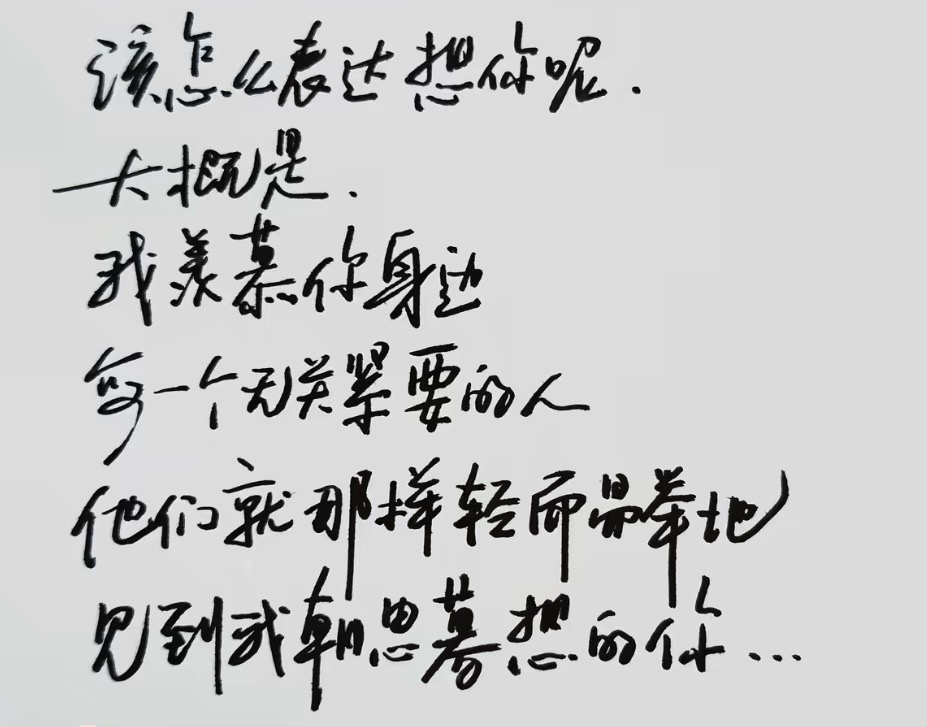 该怎么表达想你呢.
大概是.
我羡慕你身边
每一个无关紧要的人
他们就那样轻而易举地
见到我朝思暮想的你...